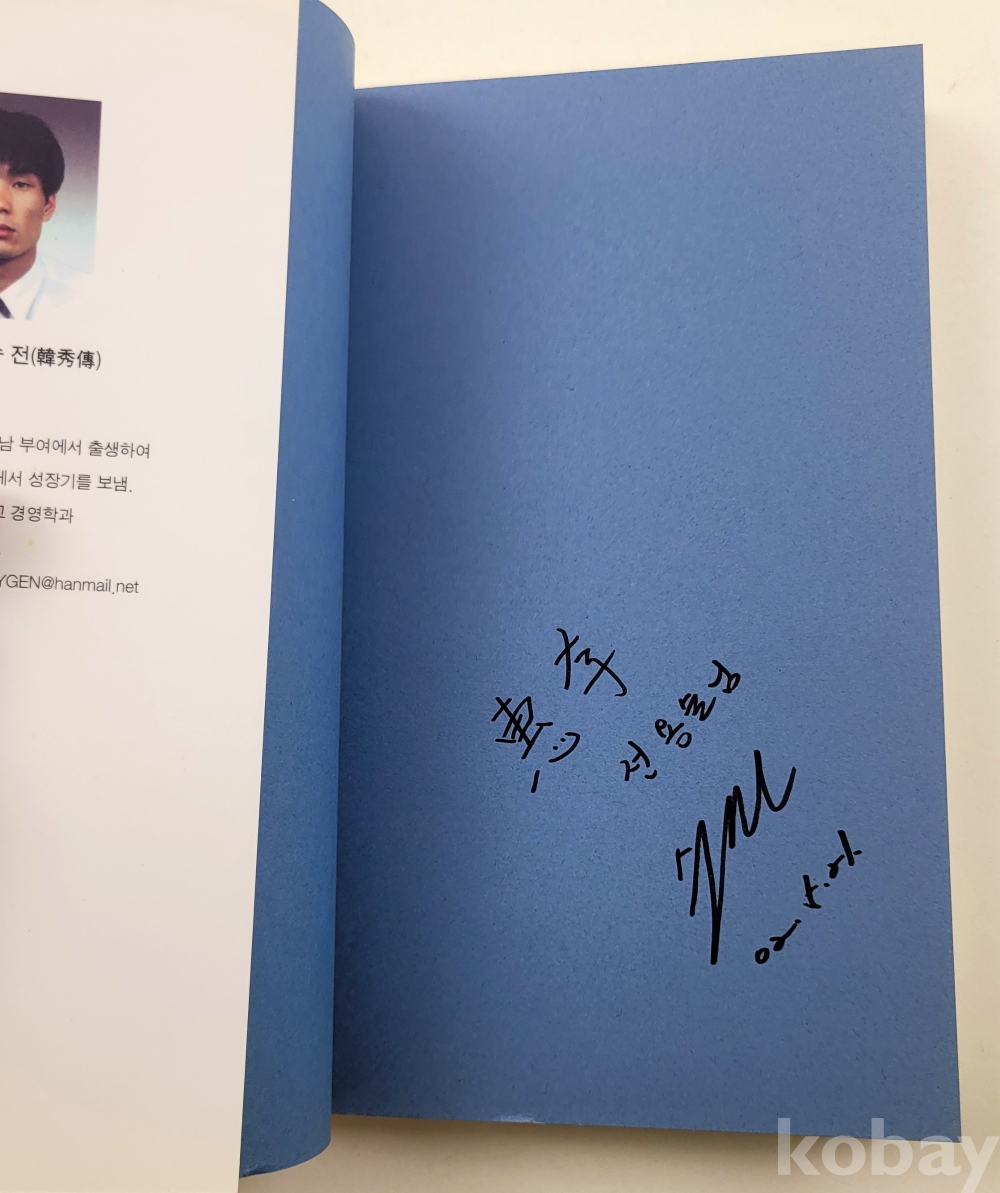 전(韓秀傳)
남 부여에서 출생하여
에서 성장기를 보냄.
교 경영학과
YGEN@hanmail.net
惠存
님
02. 5.
kobay